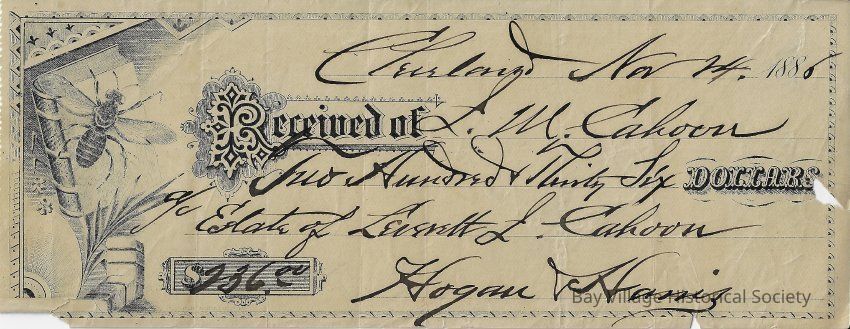 Cleveland Nov 24. 1886
Received of L. M. Cahoon
Two Hundred & Thirty Six DOLLARS
a/c Estate of Leverett L. Cahoon
$236.00
Hogan & Harris
Bay Village Historical Society